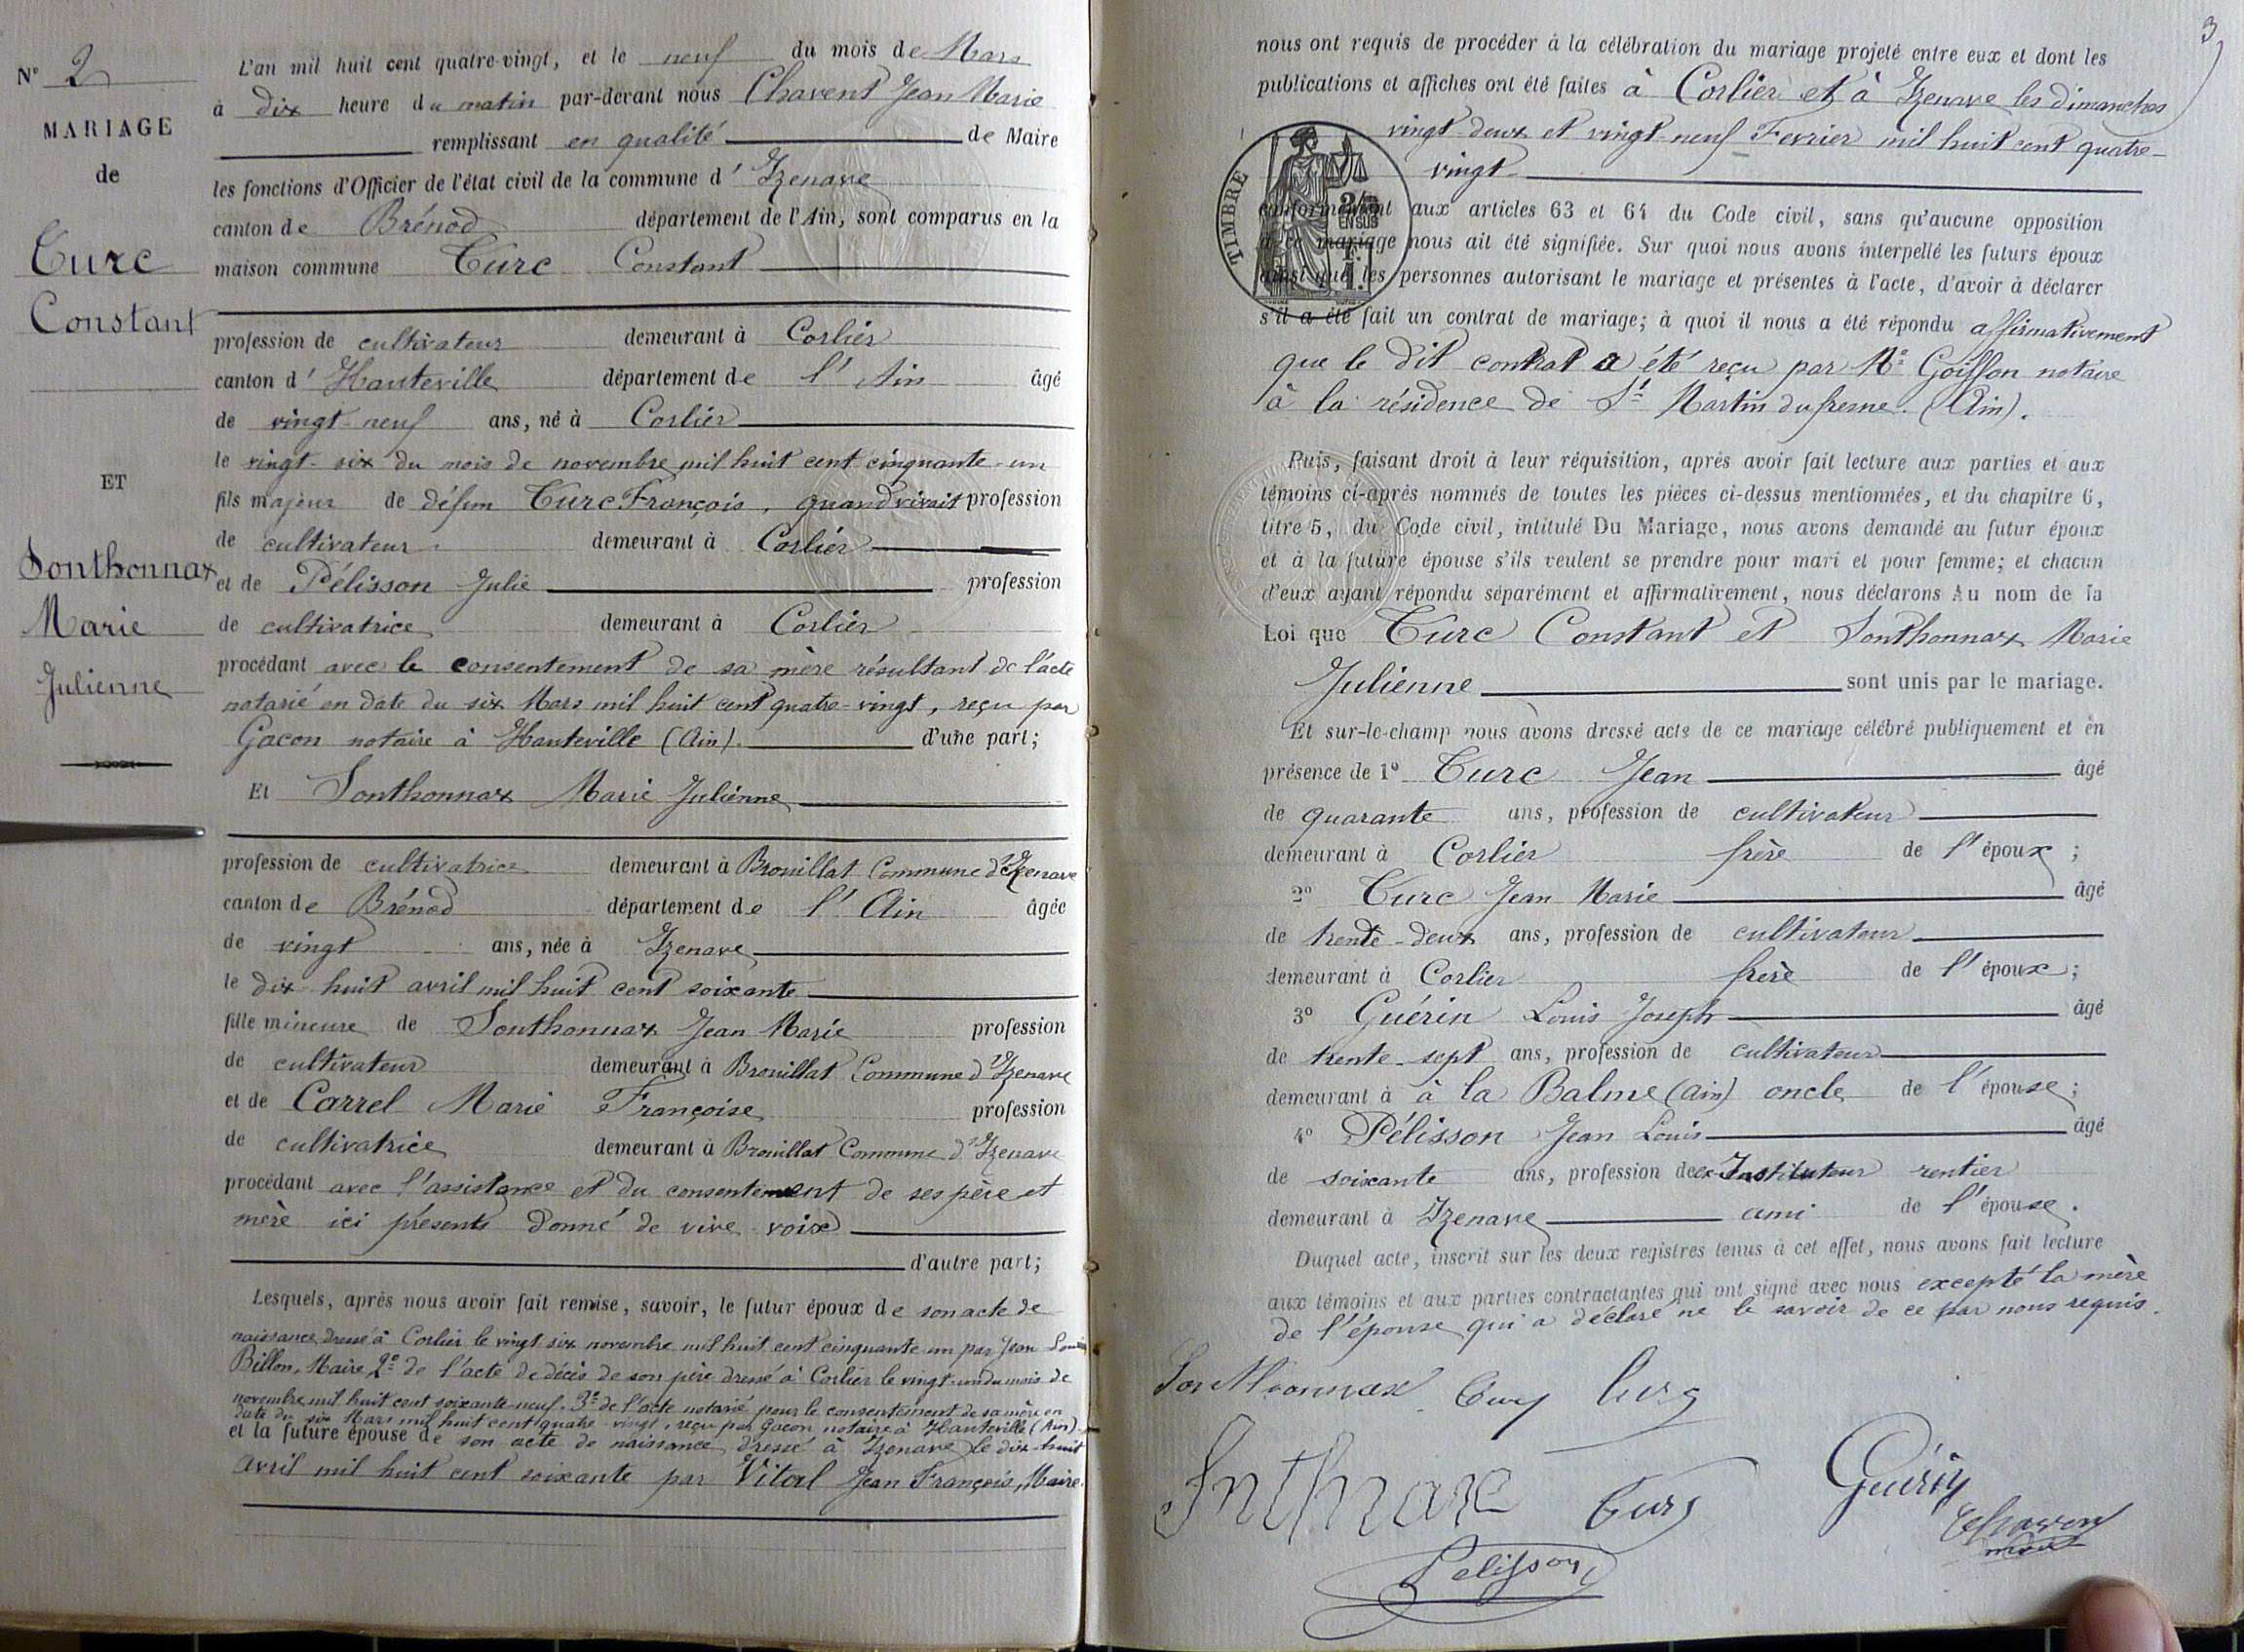 N° 2
MARIAGE
de
Turc
Constant
ET
Sonthonnax
Marie
Julienne
L'an mil huit cent quatre-vingt, et le neuf du mois de Mars
à dix heure du matin par-devant nous Chavent Jean Marie
remplissant en qualité de Maire
les fonctions d'Officier de l'état civil de la commune d' Izenave
canton de Brénod département de l'Ain, sont comparus en la
maison commune Turc Constant
profession de cultivateur demeurant à Corlier
canton d' Hauteville département de l' Ain âgé
de vingt-neuf ans, né à Corlier
le vingt-six du mois de novembre mil huit cent cinquante-un
fils majeur de défun Turc François, quand vivait profession
de cultivateur demeurant à Corlier
et de Pélisson Julie profession
de cultivatrice demeurant à Corlier
procédant avec le consentement de sa mère résultant de l'acte
notarié en date du six Mars mil huit cent quatre-vingt, reçu par
Gacon notaire à Hauteville (Ain). d'une part;
Et Sonthonnax Marie Julienne
profession de cultivatrice demeurant à Brouillat Commune d'Izenave
canton de Brénod département de l' Ain âgée
de vingt ans, née à Izenave
le dix-huit avril mil huit cent soixante
fille mineure de Sonthonnax Jean Marie profession
de cultivateur demeurant à Brouillat Commune d'Izenave
et de Carrel Marie Françoise profession
de cultivatrice demeurant à Brouillat Commune d'Izenave
procédant avec l'assistance et du consentement de ses père et
mère ici présents donné de vive voixe
d'autre part;
Lesquels, après nous avoir fait remise, savoir, le futur époux de son acte de
naissance dressé à Corlier le vingt six novembre mil huit cent cinquante un par Jean Louis
Billon, Maire, 2° de l'acte de décès de son père dressé à Corlier le vingt-un du mois de
novembre mil huit cent soixante-neuf. 3° de l'acte notarié pour le consentement de sa mère en
date du six Mars mil huit cent quatre-vingt, reçu par Gacon notaire à Hauteville (Ain).
et la future épouse de son acte de naissance dressé à Izenave le dix-huit
avril mil huit cent soixante par Vital Jean François, Maire.
3
nous ont requis de procéder à la célébration du mariage projeté entre eux et dont les
publications et affiches ont été faites à Corlier et à Izenave les dimanches
vingt-deux et vingt-neuf Fevrier mil huit cent quatre-
vingt
TIMBRE
2/10 EN SUS
conformément aux articles 63 et 64 du Code civil, sans qu'aucune opposition
à ce mariage nous ait été signifiée. Sur quoi nous avons interpellé les futurs époux
ainsi que les personnes autorisant le mariage et présentes à l'acte, d'avoir à déclarer
s'il a été fait un contrat de mariage; à quoi il nous a été répondu affirmativement
que le dit contrat a été reçu par Me Goiffon notaire
à la résidence de St Martin du fresne. (Ain).
Puis, faisant droit à leur réquisition, après avoir fait lecture aux parties et aux
témoins ci-après nommés de toutes les pièces ci-dessus mentionnées, et du chapitre 6,
titre 5, du Code civil, intitulé Du Mariage, nous avons demandé au futur époux
et à la future épouse s'ils veulent se prendre pour mari et pour femme; et chacun
d'eux ayant répondu séparément et affirmativement, nous déclarons Au nom de la
Loi que Turc Constant et Sonthonnax Marie
Julienne sont unis par le mariage.
Et sur-le-champ nous avons dressé acte de ce mariage célébré publiquement et en
présence de 1° Turc Jean âgé
de quarante ans, profession de cultivateur
demeurant à Corlier frère de l'époux ;
2° Turc Jean Marie âgé
de trente-deux ans, profession de cultivateur
demeurant à Corlier frère de l'époux;
3° Guérin Louis Joseph âgé
de trente-sept ans, profession de cultivateur
demeurant à à la Balme (Ain) oncle de l'épouse;
4° Pélisson Jean Louis âgé
de soixante ans, profession de ex Instituteur rentier
demeurant à Izenave ami de l'épouse.
Duquel acte, inscrit sur les deux registres tenus à cet effet, nous avons fait lecture
aux témoins et aux parties contractantes qui ont signé avec nous excepté la mère
de l'épouse qui a déclaré ne le savoir de ce par nous requis.
Sonthonnax Turc Turc
Sonthonax Turc Guérin
Chavent
maire
Pelisson